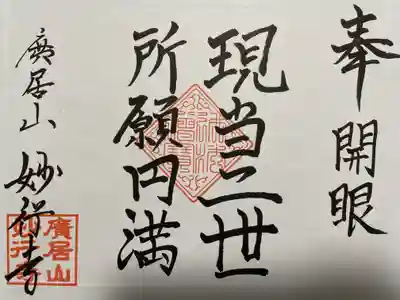 奉開眼
現当二世
所願円満
廣居山妙行寺
廣居山
妙行寺